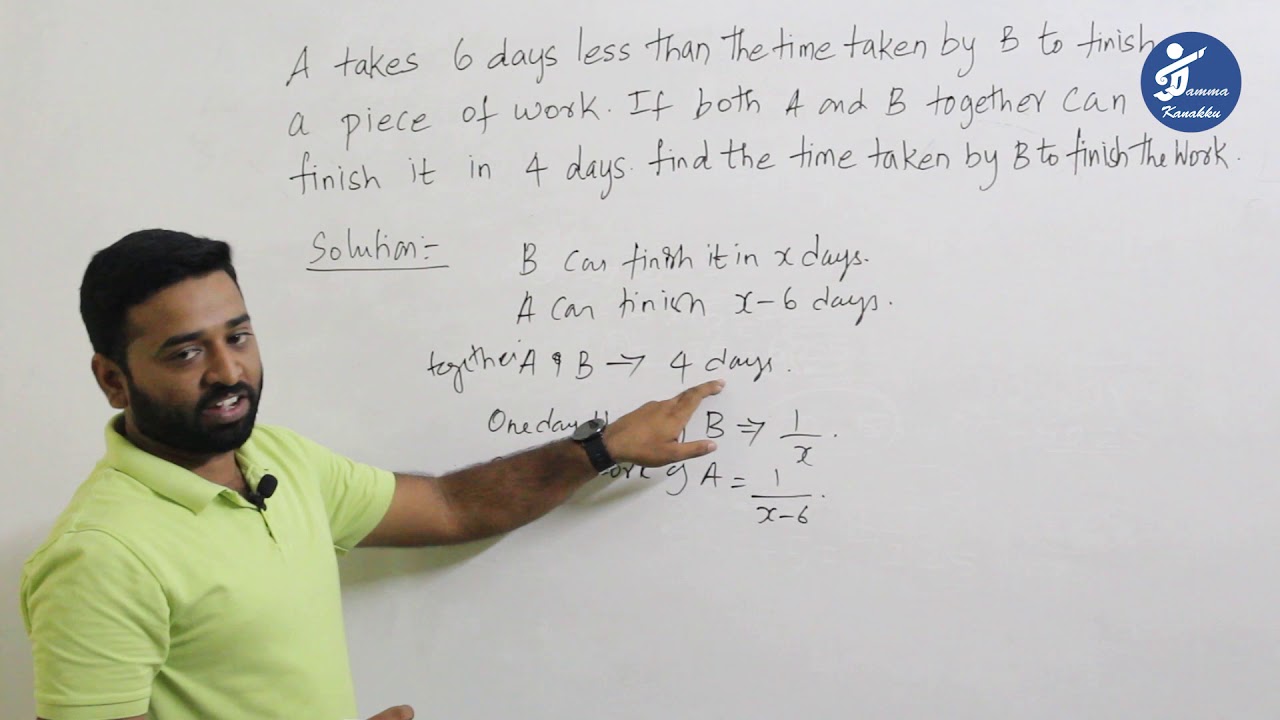 A takes 6 days less than the time taken by B to finish
a piece of work. If both A and B together can
finish it in 4 days. find the time taken by B to finish the Work.
Solution:-
B can finish it in x days.
A can finish x-6 days.
together A & B → 4 days.
One day B ⇒ 1/x.
A = 1/(x-6).
Tamma
Kanakku